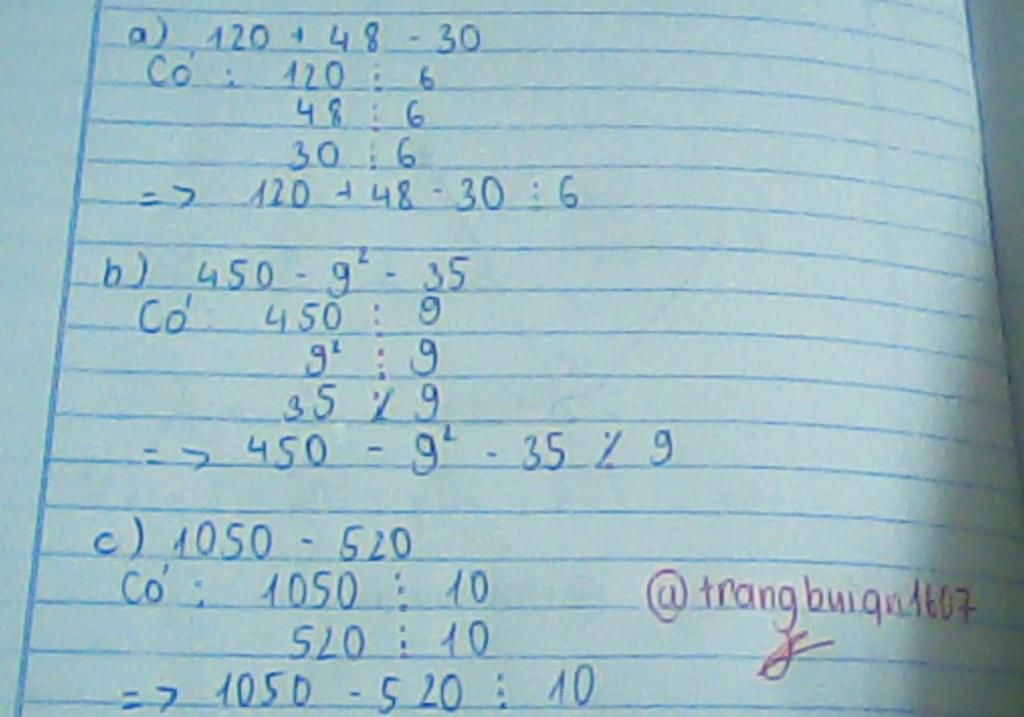 a) 120 + 48 - 30
Có : 120 ⋮ 6
48 ⋮ 6
30 ⋮ 6
=> 120 + 48 - 30 ⋮ 6
b) 450 - 9² - 35
Có 450 ⋮ 9
9² ⋮ 9
35 ⋮̸ 9
=> 450 - 9² - 35 ⋮̸ 9
c) 1050 - 520
Có : 1050 ⋮ 10
520 ⋮ 10
=> 1050 - 520 ⋮ 10
@trangbuiqn1607